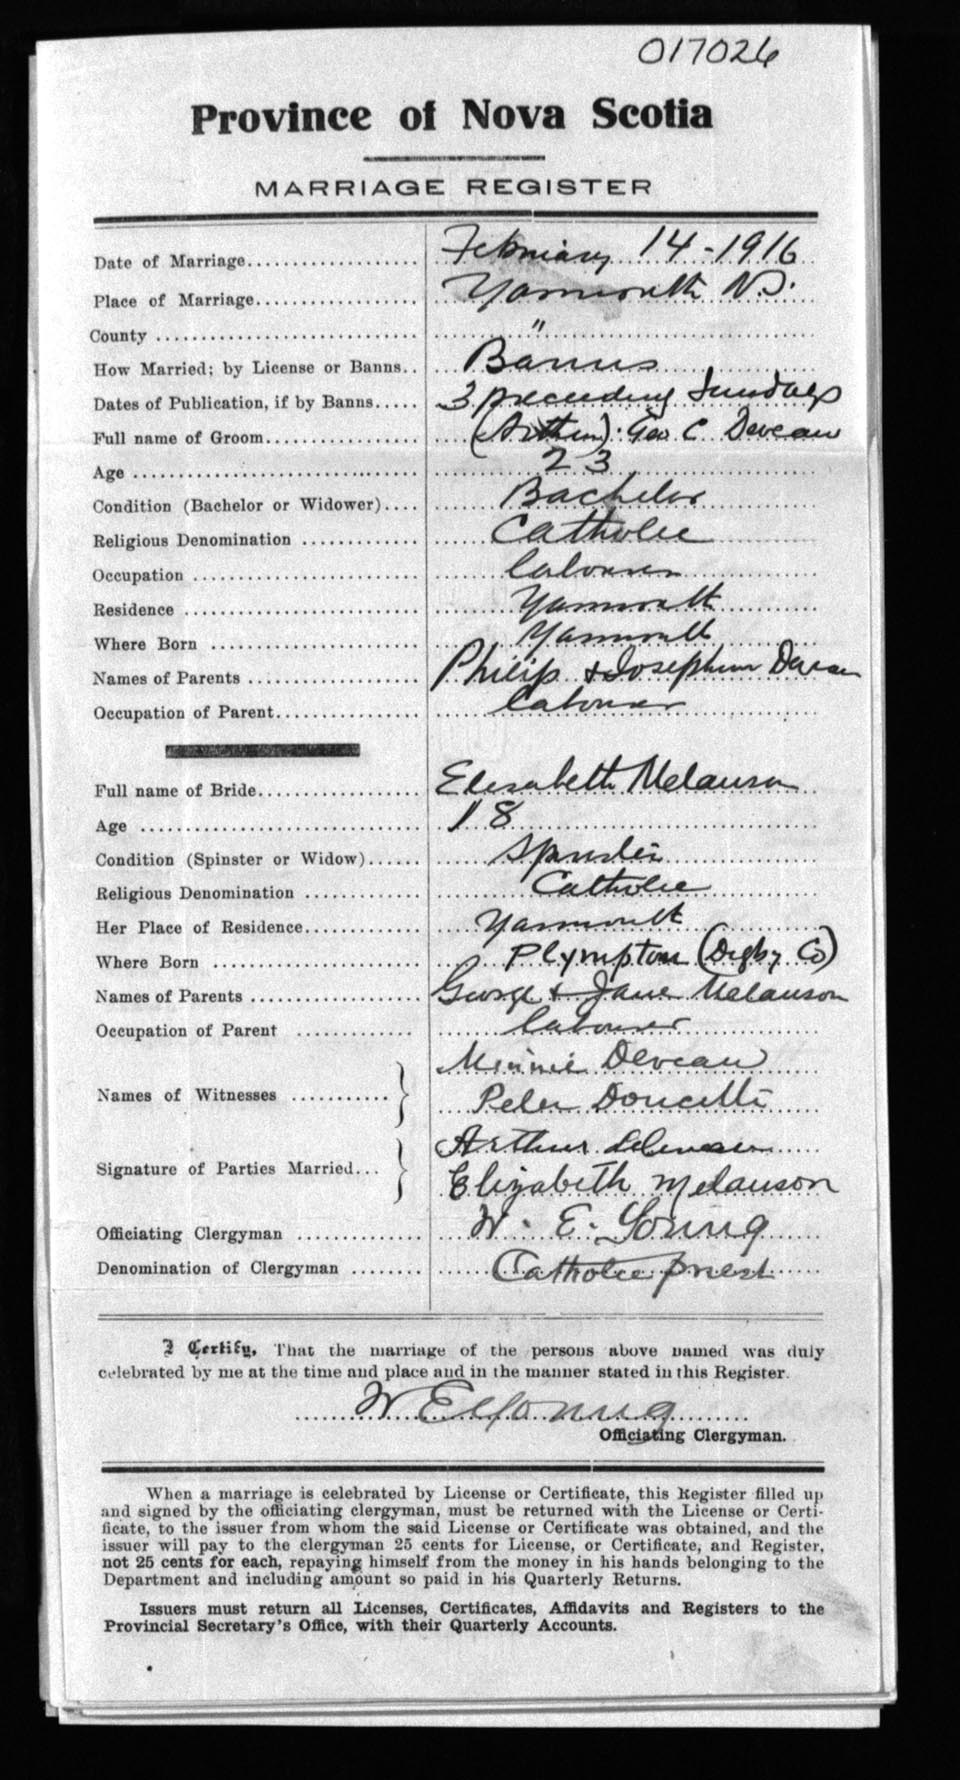 017026
Province of Nova Scotia
MARRIAGE REGISTER
Date of Marriage.................... February 14-1916
Place of Marriage.................. Yarmouth N.S.
County ............................. "
How Married; by License or Banns.. Banns
Dates of Publication, if by Banns..... 3 preceeding Sundays
Full name of Groom................. (Arthur) Geo C Deveau
Age .................................. 23
Condition (Bachelor or Widower).... Bachelor
Religious Denomination ............. Catholic
Occupation ......................... Labourer
Residence .......................... Yarmouth
Where Born ........................ Yarmouth
Names of Parents ................... Philip & Josephine Deveau
Occupation of Parent................ Labourer
Full name of Bride.................. Elesabeth Melanson
Age ................................. 18
Condition (Spinster or Widow)...... Spinster
Religious Denomination ............. Catholic
Her Place of Residence............. Yarmouth
Where Born ........................ Plympton (Digby Co)
Names of Parents ................... George & Jane Melanson
Occupation of Parent ............. Labourer
Names of Witnesses ........... Minnie Deveau
Peter Doucette
Signature of Parties Married... Arthur
Elizabeth Melanson
Officiating Clergyman ............. W. E. Young
Denomination of Clergyman ........ Catholic priest
I Certify, That the marriage of the persons above named was duly
celebrated by me at the time and place and in the manner stated in this Register.
W E Young
Officiating Clergyman.
When a marriage is celebrated by License or Certificate, this Register filled up
and signed by the officiating clergyman, must be returned with the License or Certi-
ficate, to the issuer from whom the said License or Certificate was obtained, and the
issuer will pay to the clergyman 25 cents for License, or Certificate, and Register,
not 25 cents for each, repaying himself from the money in his hands belonging to the
Department and including amount so paid in his Quarterly Returns.
Issuers must return all Licenses, Certificates, Affidavits and Registers to the
Provincial Secretary's Office, with their Quarterly Accounts.